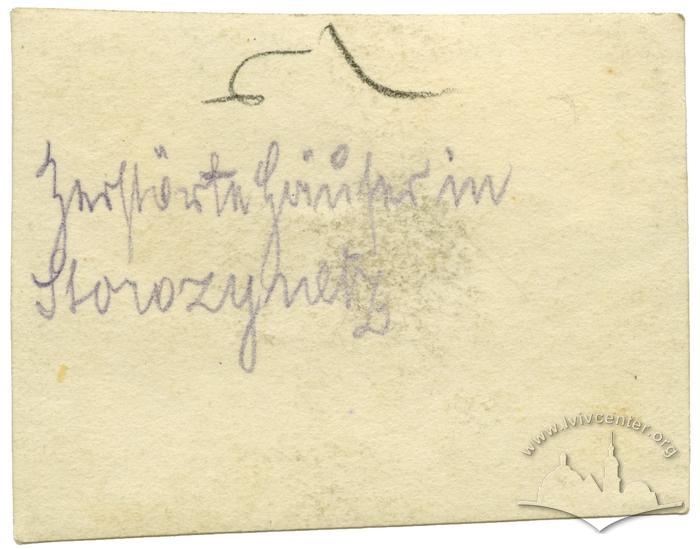 Zerstörte Häuser in
Storozynetz
www.lvivcenter.org